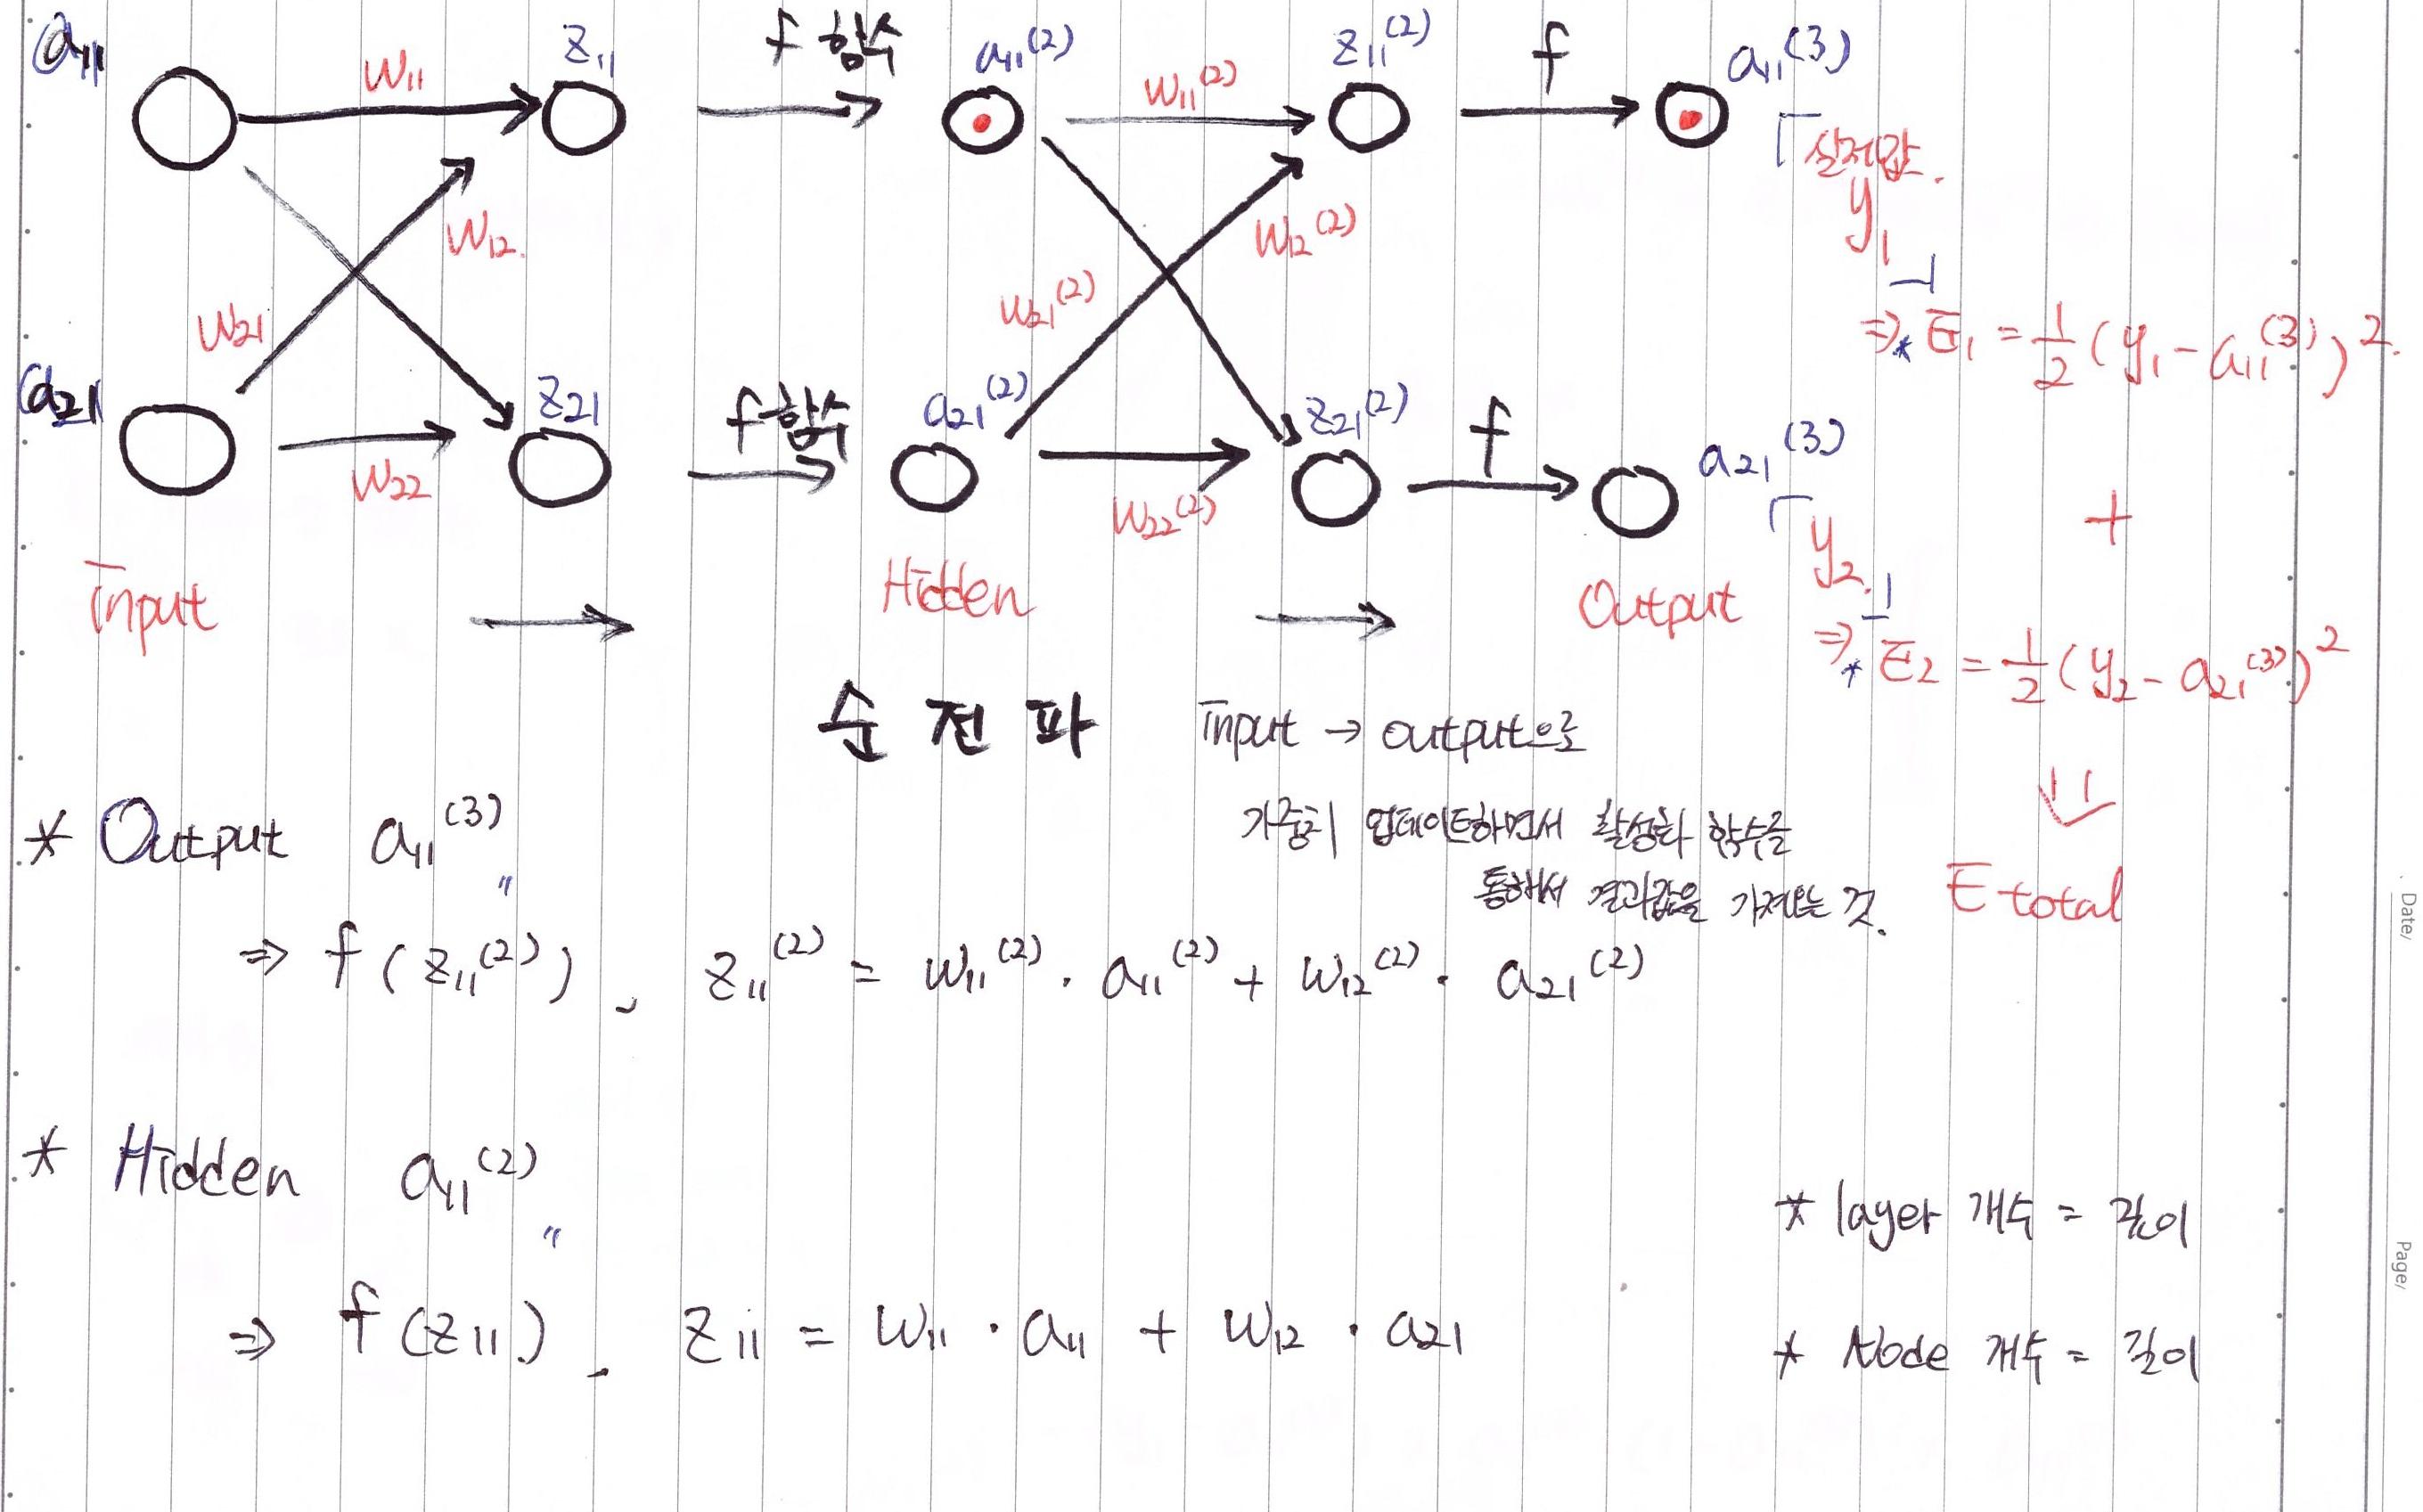 a₁₁ w₁₁ z₁₁ f 함수 a₁₁⁽²⁾ w₁₁⁽²⁾ z₁₁⁽²⁾ f a₁₁⁽³⁾
실제값.
y₁
w₁₂. w₁₂⁽²⁾
w₂₁ w₂₁⁽²⁾
⇒* E₁ = ½ (y₁ - a₁₁⁽³⁾)².
a₂₁ w₂₂ z₂₁ f 함수 a₂₁⁽²⁾ w₂₂⁽²⁾ z₂₁⁽²⁾ f a₂₁⁽³⁾
+
y₂.
Input → Hidden → Output
⇒* E₂ = ½ (y₂ - a₂₁⁽³⁾)²
순전파 Input → output으로
가중치 업데이트하면서 활성화 함수를
통해서 결과값을 가져오는 것.
E total
* Output a₁₁⁽³⁾
"
⇒ f (z₁₁⁽²⁾), z₁₁⁽²⁾ = w₁₁⁽²⁾ · a₁₁⁽²⁾ + w₁₂⁽²⁾ · a₂₁⁽²⁾
* Hidden a₁₁⁽²⁾
"
⇒ f (z₁₁), z₁₁ = w₁₁ · a₁₁ + w₁₂ · a₂₁
* layer 개수 = 깊이
* Node 개수 = 길이
Date/
Page/